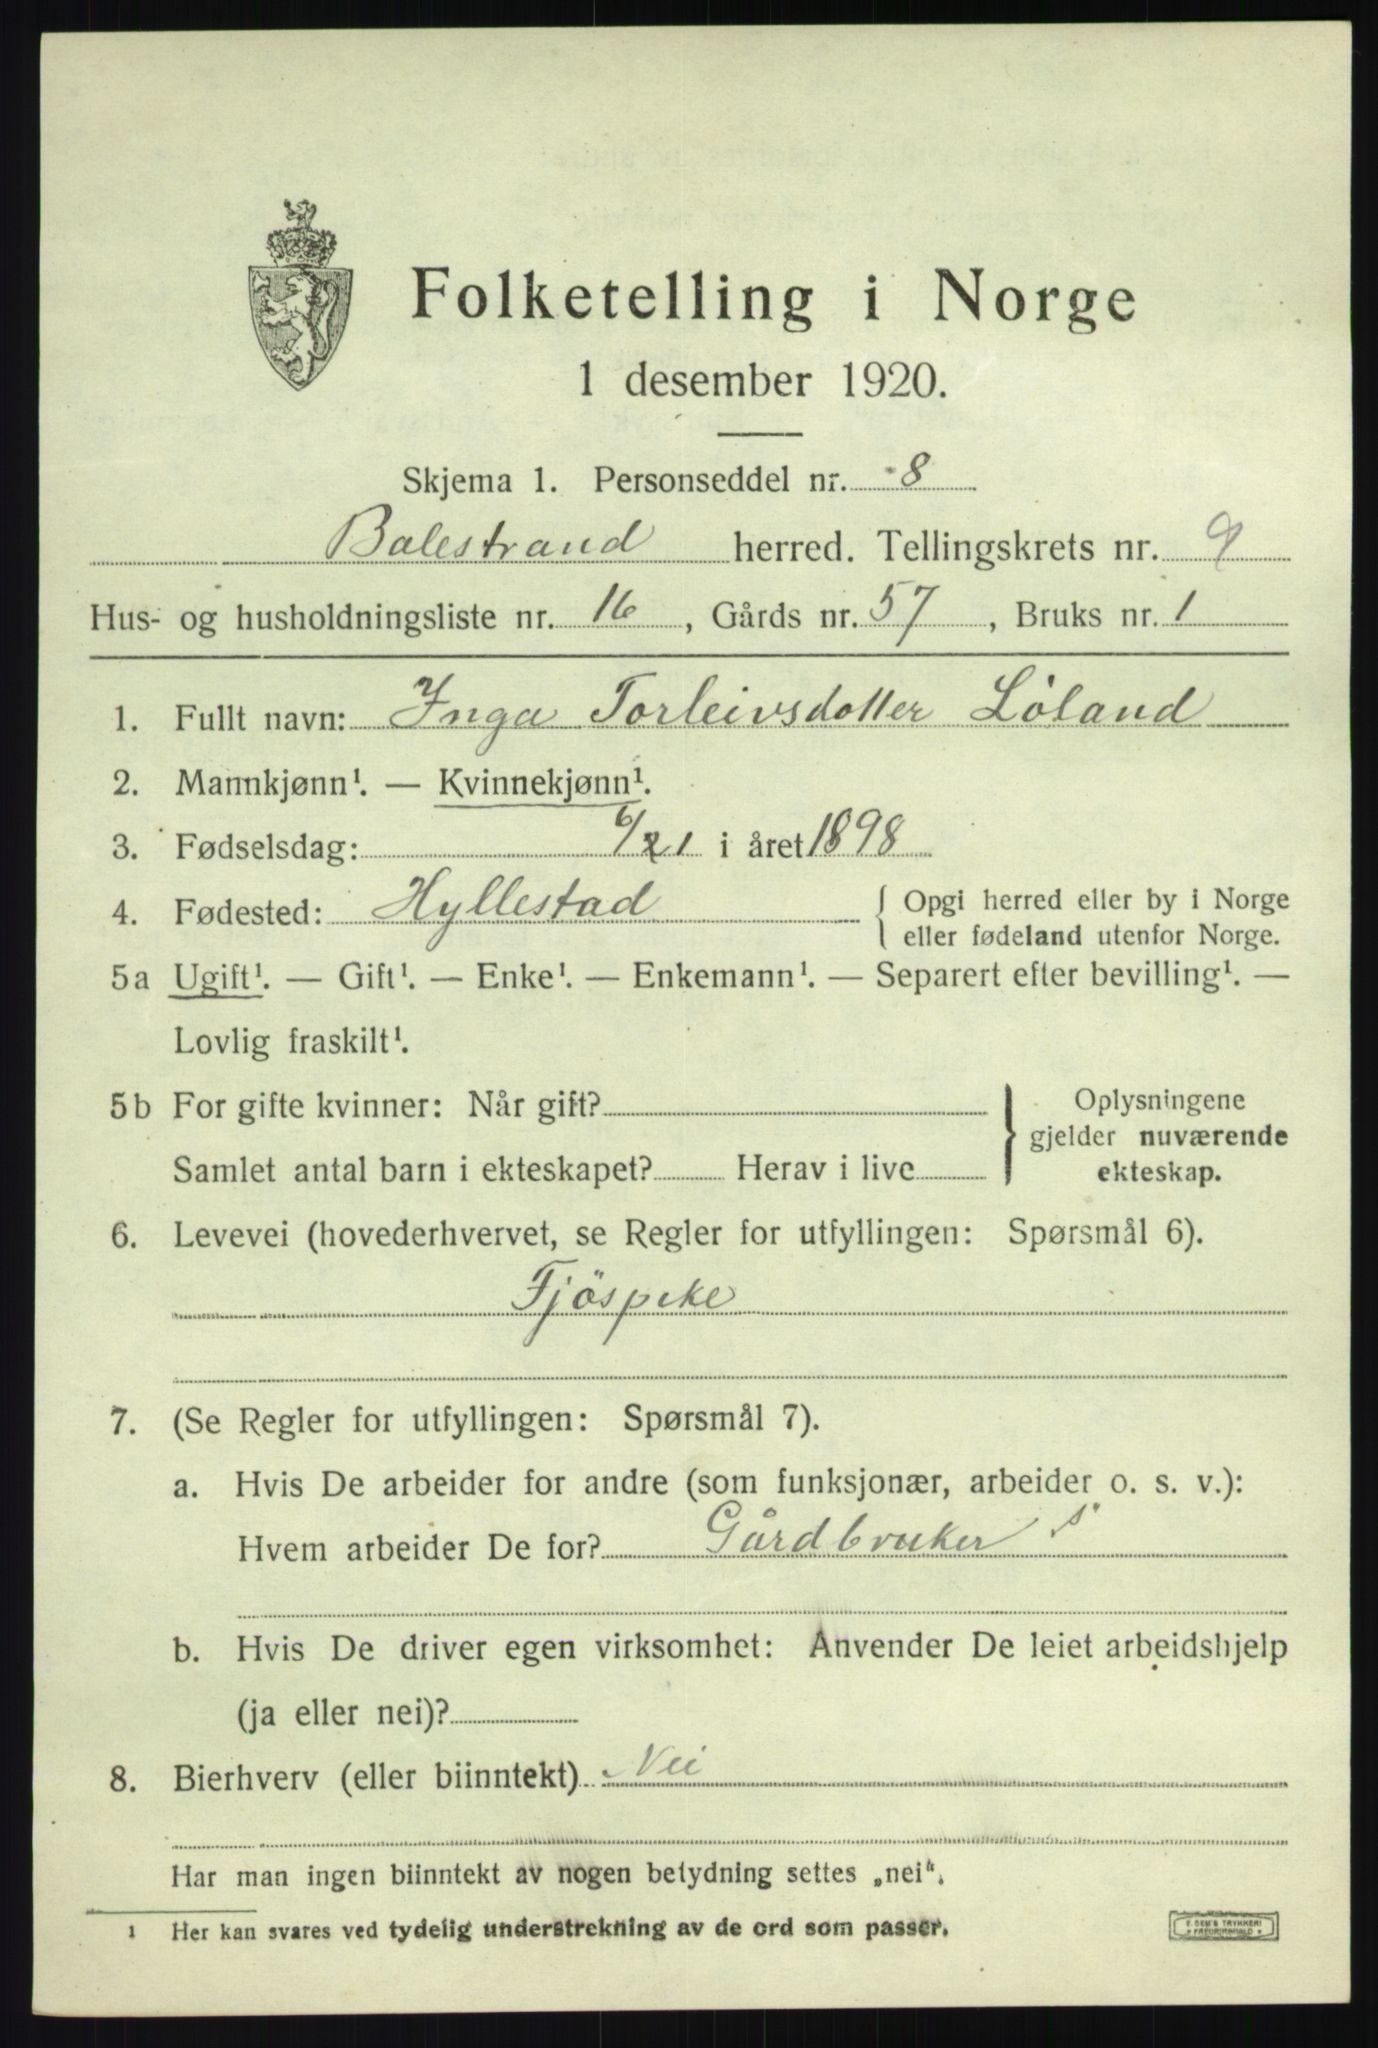 Folketelling i Norge
1 desember 1920.
Skjema 1. Personseddel nr. 8
Balestrand herred. Tellingskrets nr. 9
Hus- og husholdningsliste nr. 16, Gårds nr. 57, Bruks nr. 1
1. Fullt navn: Inga Torleivsdotter Löland
2. Mannkjønn¹. — Kvinnekjønn¹.
3. Fødselsdag: 6/1 i året 1898
4. Fødested: Hyllestad { Opgi herred eller by i Norge
eller fødeland utenfor Norge.
5a Ugift¹. — Gift¹. — Enke¹. — Enkemann¹. — Separert efter bevilling¹. —
Lovlig fraskilt¹.
5b For gifte kvinner: Når gift? } Oplysningene
gjelder nuværende
Samlet antal barn i ekteskapet? Herav i live ekteskap.
6. Levevei (hovederhvervet, se Regler for utfyllingen: Spørsmål 6).
Fjöspike
7. (Se Regler for utfyllingen: Spørsmål 7).
a. Hvis De arbeider for andre (som funksjonær, arbeider o. s. v.):
Hvem arbeider De for? Gårdbruker s
b. Hvis De driver egen virksomhet: Anvender De leiet arbeidshjelp
(ja eller nei)?
8. Bierhverv (eller biinntekt) Nei
Har man ingen biinntekt av nogen betydning settes „nei“.
1 Her kan svares ved tydelig understrekning av de ord som passer.